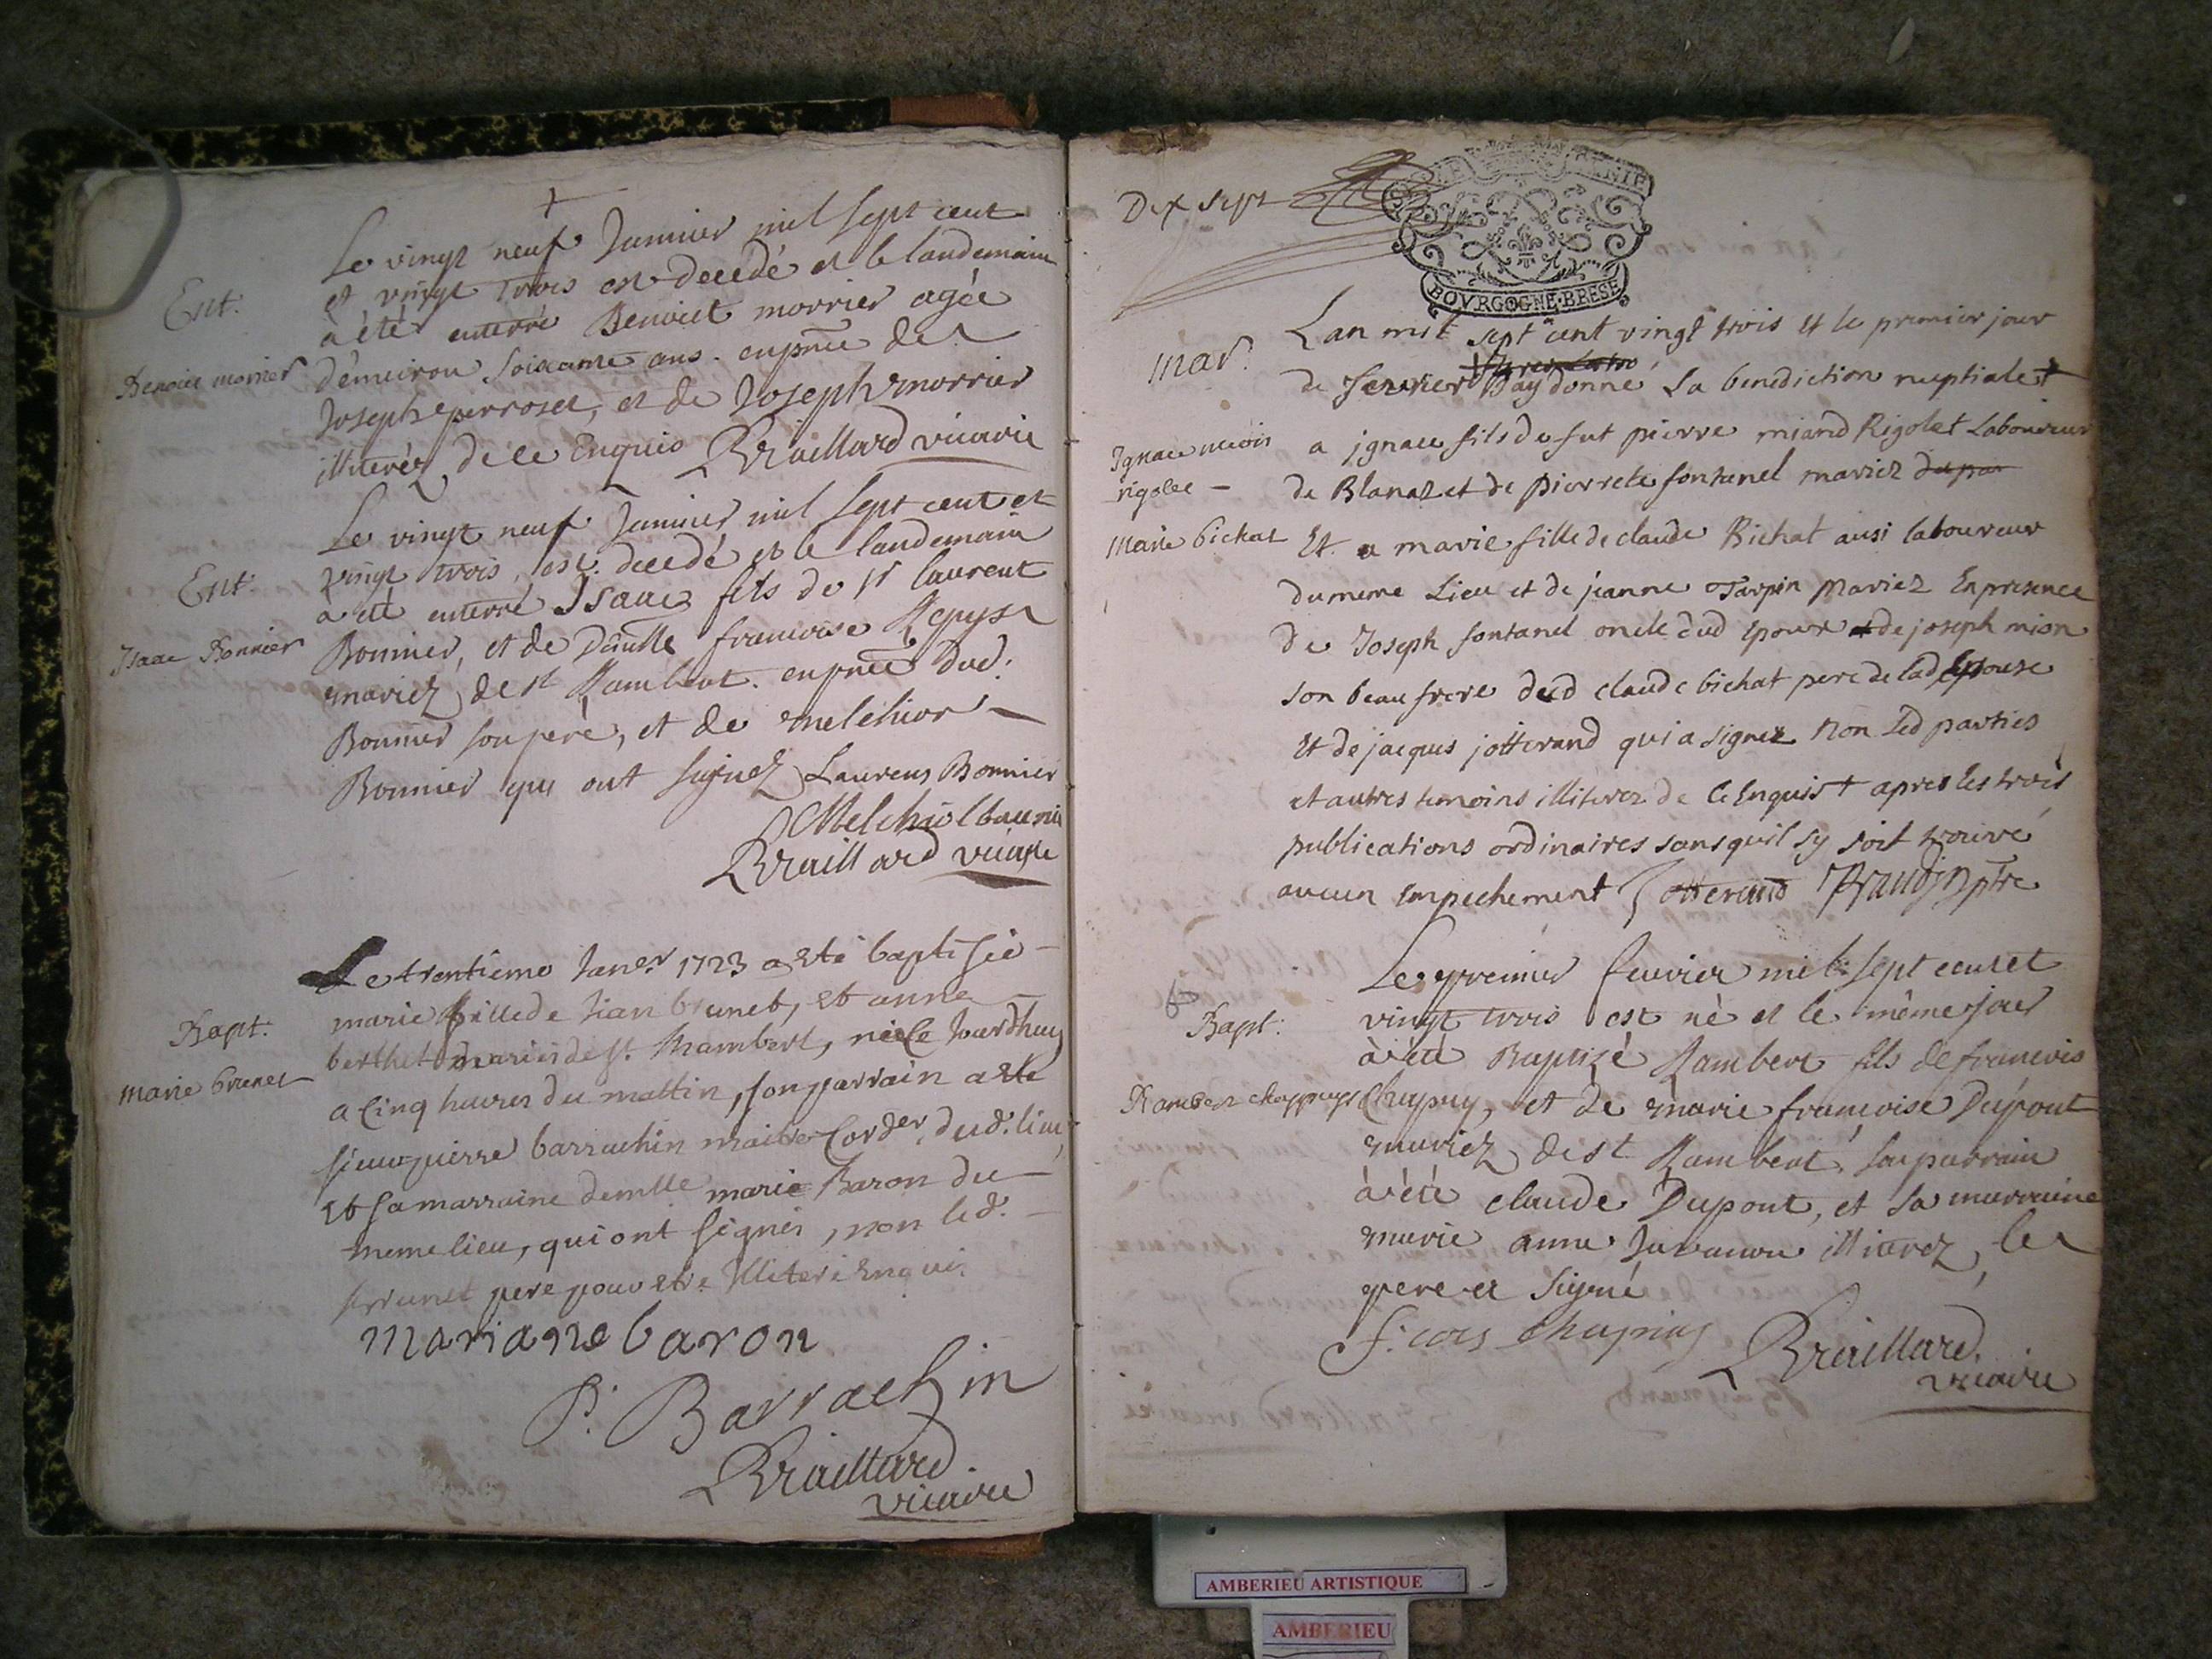 Ent.
Benoist morrier
Le vingt neuf Janvier mil sept cent
et vingt trois est decedé et le landemain
a été enterré Benoict morrier agée
d'environ soixante ans. enpnce de
Joseph perroset, et de Joseph morrier
illiterez de ce Enquis Braillard vicaire
Ent.
Isaac Bonnier
Le vingt neuf Janvier mil sept cent et
vingt trois, est decedé et le landemain
a été enterré Isaac fils de sr laurent
Bonnier, et de Demlle francoise
mariez de st Rambert. enpnce dud.
Bonnier son pere, et de melchior
Bonnier qui ont signez Laurens Bonnier
Melchiol bonnie
Braillard vicaire
Bapt.
Marie brunet
Le trentieme Janer 1723 a esté baptisée
marie fille de Jean brunet, et anne
berthet mariés de st. Rambert, née ce Jourdhuy
a Cinq heures du mattin, son parrain a esté
sieur pierre barrachin maitre Corder, dud. lieu,
et sa marraine demlle marie Baron du
meme lieu, qui ont signés, non led.
brunet pere pour etre Illiteré Enquis
mariane baron
P. Barrachin
Braillard
vicaire
Dix sept
BOVRGOGNE·BRESE
mar.
Ignace
rigolet
Marie bichat
L an mil sept cent vingt trois et le premier jour
de fevrier Jay donné la benediction nuptiale +
a jgnace fils de fut pierre miand Rigolet Laboureur
de Blanaz et de pierrete fontanel mariez
Et a marie fille de claude Bichat ausi laboureur
du meme Lieu et de jeanne Tarpin Mariez En presence
de Joseph fontanel oncle dud Epoux de joseph mion
son beau frere dud claude bichat pere de lad Epouse
Et de jacques jotterand qui a signez Non Led parties
et autres temoins illiterez de Ce Enquis + apres les trois
publications ordinaires sans quil sy soit trouvé
aucun Empechement Jotterand ptre
Bapt.
Rambert chappuys
Le premier fevrier mil sept cent et
vingt trois est né et le même jour
à été Baptizé Rambert fils de francois
Chapuy, et de marie francoise Dupont
mariez de st Rambert. son parrain
à été claude Dupont, et sa marraine
marie anne illiterez, le
pere a signé
f. cois Chapuy
Braillard
vicaire
AMBERIEU ARTISTIQUE
AMBERIEU